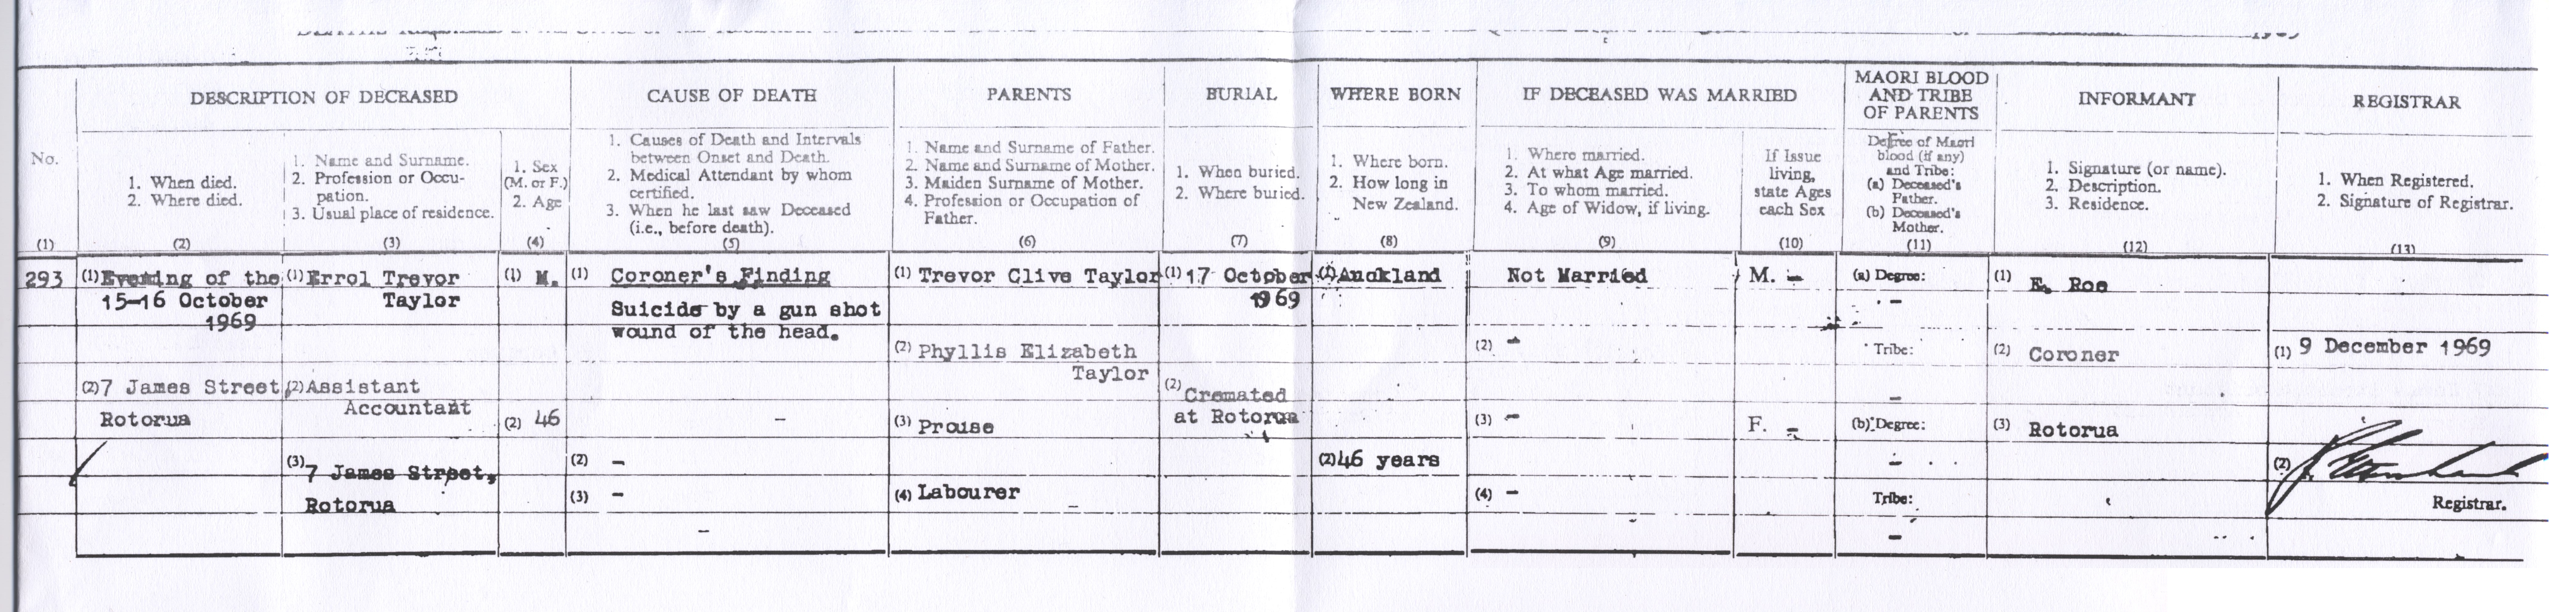 DESCRIPTION OF DECEASED
CAUSE OF DEATH
PARENTS
BURIAL
WHERE BORN
IF DECEASED WAS MARRIED
MAORI BLOOD
AND TRIBE
OF PARENTS
INFORMANT
REGISTRAR
No.
(1)
1. When died.
2. Where died.
(2)
1. Name and Surname.
2. Profession or Occu-
pation.
3. Usual place of residence.
(3)
1. Sex
(M. or F.)
2. Age
(4)
1. Causes of Death and Intervals
between Onset and Death.
2. Medical Attendant by whom
certified.
3. When he last saw Deceased
(i.e., before death).
(5)
1. Name and Surname of Father.
2. Name and Surname of Mother.
3. Maiden Surname of Mother.
4. Profession or Occupation of
Father.
(6)
1. When buried.
2. Where buried.
(7)
1. Where born.
2. How long in
New Zealand.
(8)
1. Where married.
2. At what Age married.
3. To whom married.
4. Age of Widow, if living.
(9)
If Issue
living,
state Ages
each Sex
(10)
Degree of Maori
blood (if any)
and Tribe:
(a) Deceased's
Father.
(b) Deceased's
Mother.
(11)
1. Signature (or name).
2. Description.
3. Residence.
(12)
1. When Registered.
2. Signature of Registrar.
(13)
293
(1) Evening of the
15-16 October
1969
(2) 7 James Street
Rotorua
(1) Errol Trevor
Taylor
(2) Assistant
Accountant
(3) 7 James Street,
Rotorua
(1) M.
(2) 46
(1) Coroner's Finding
Suicide by a gun shot
wound of the head.
-
(2) -
(3) -
-
(1) Trevor Clive Taylor
(2) Phyllis Elizabeth
Taylor
(3) Prouse
(4) Labourer
(1) 17 October
1969
(2) Cremated
at Rotorua
(1) Auckland
(2) 46 years
Not Married
(2) -
(3) -
(4) -
M. -
F. -
(a) Degree:
-
Tribe:
-
(b) Degree:
-
Tribe:
-
(1) E. Roe
(2) Coroner
(3) Rotorua
(1) 9 December 1969
(2)
Registrar.